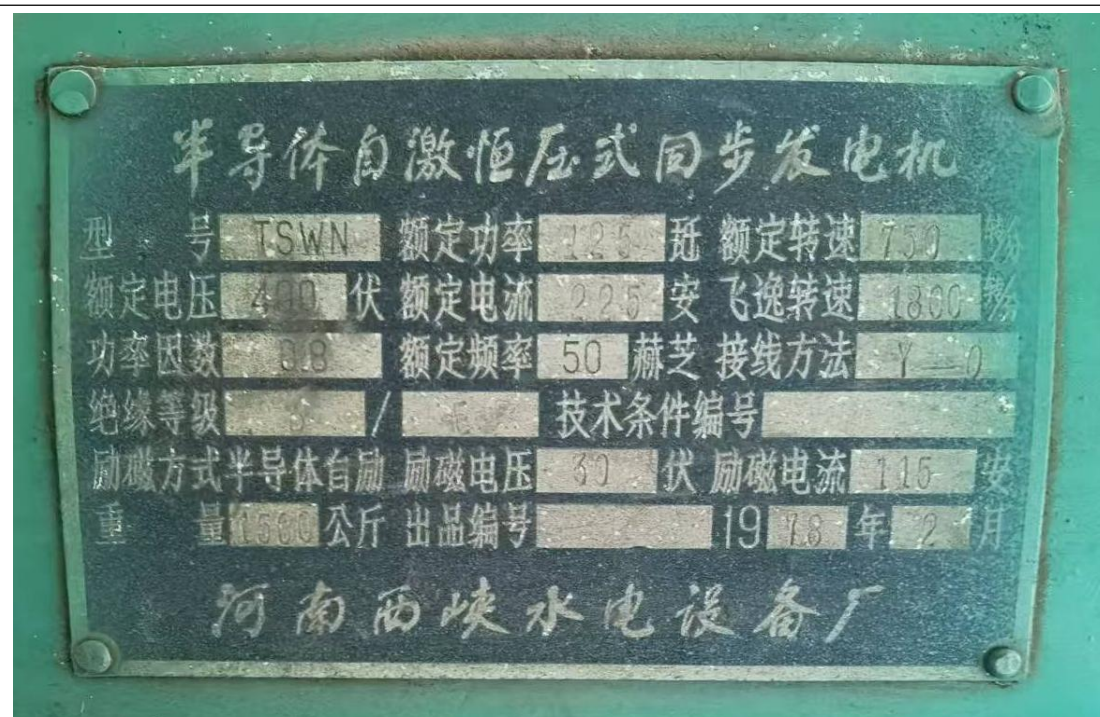 半导体自激恒压式同步发电机
型号 TSWN 额定功率 125 瓩 额定转速 750 转/分
额定电压 400 伏 额定电流 225 安 飞逸转速 1800 转/分
功率因数 0.8 额定频率 50 赫芝 接线方法 Y-0
绝缘等级 / E 技术条件编号
励磁方式 半导体自励 励磁电压 30 伏 励磁电流 115 安
重量 1500 公斤 出品编号 1978 年 2 月
河南西峡水电设备厂